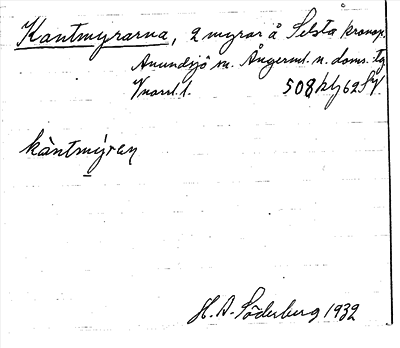 Kantmyrarna, 2 myrar å Selsta kronop.
Anundsjö sn. Ångerml. n. doms. tg
V norrl. l. 508
kàntmýran
H. A. Söderberg 1932